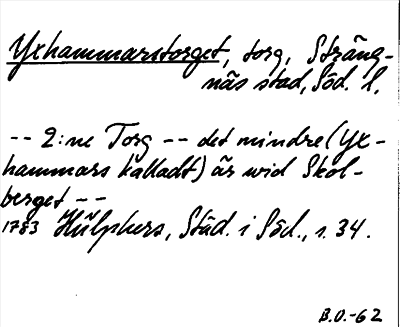 Yxhammarstorget, torg, Sträng-
näs stad, Söd. l.
-- 2:ne Torg -- det mindre (Yx-
hammars kalladt) är wid Skol-
berget --
1783 Hülphers, Städ. i Söd., s. 34.
B.O.-62